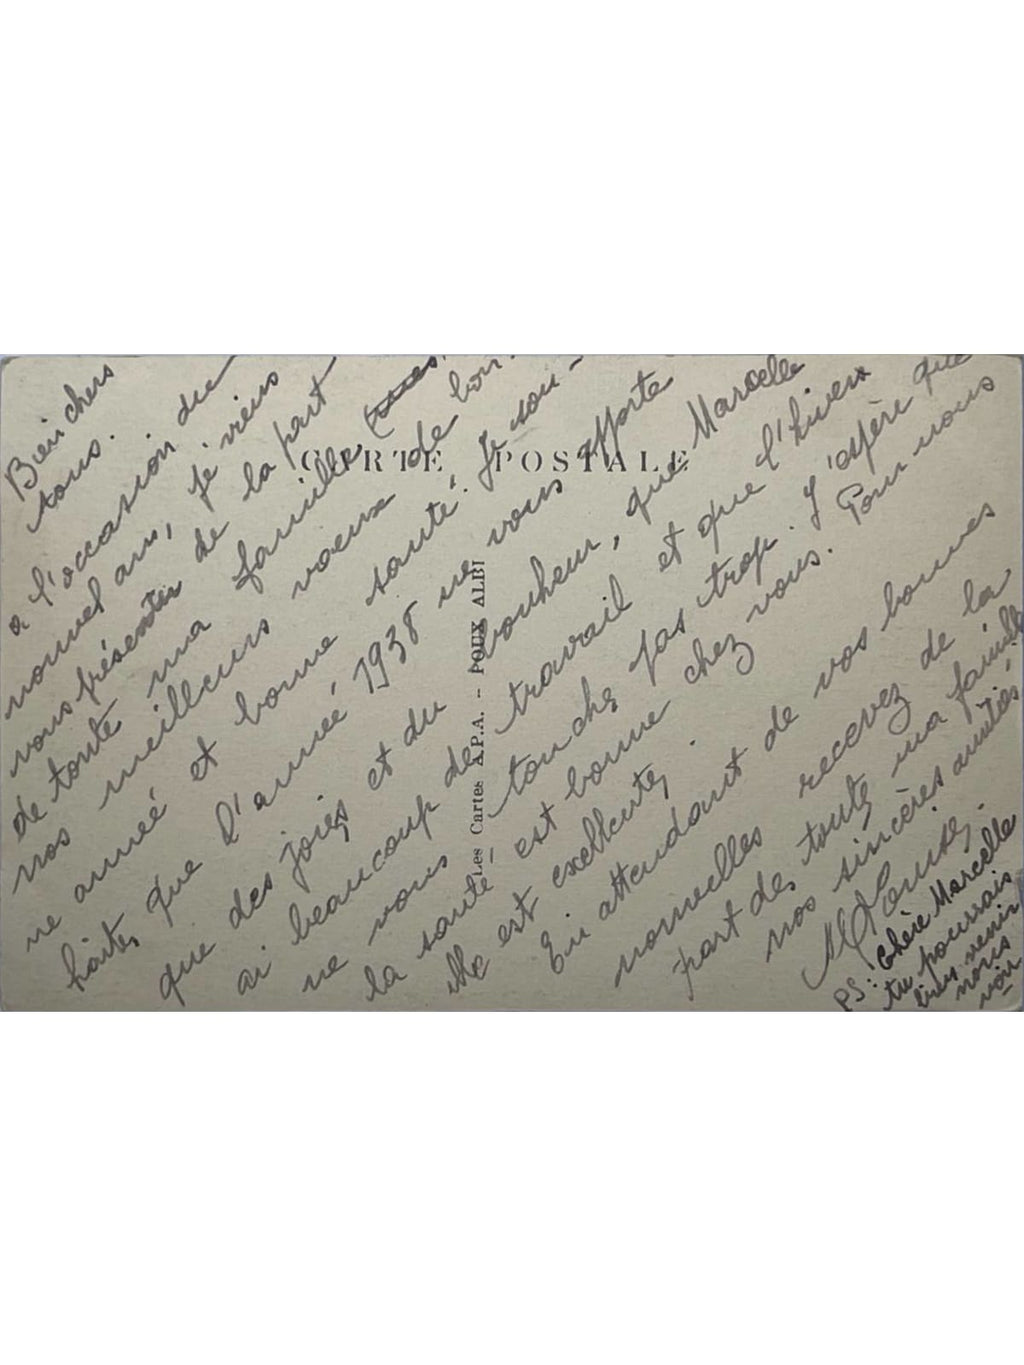 CARTE POSTALE
Les Cartes A.P.A. - POUX ALBI
Bien chers
tous.
a l'occasion du
nouvel an, je viens
vous présenter de la part
de toute ma famille
nos meilleurs voeux de bon-
ne année et bonne santé. Je sou-
haite que l'année 1938 ne vous apporte
que des joies et du bonheur, que Marcelle
ai beaucoup de travail et que l'hiver
ne vous touche pas trop. J'espère que
la santé est bonne chez vous. Pour nous
elle est excellente.
En attendant de vos bonnes
nouvelles recevez de la
part de toute ma famille
nos sincères amitiés
PS: Chère Marcelle
tu pourrais
bien venir
nous
voir